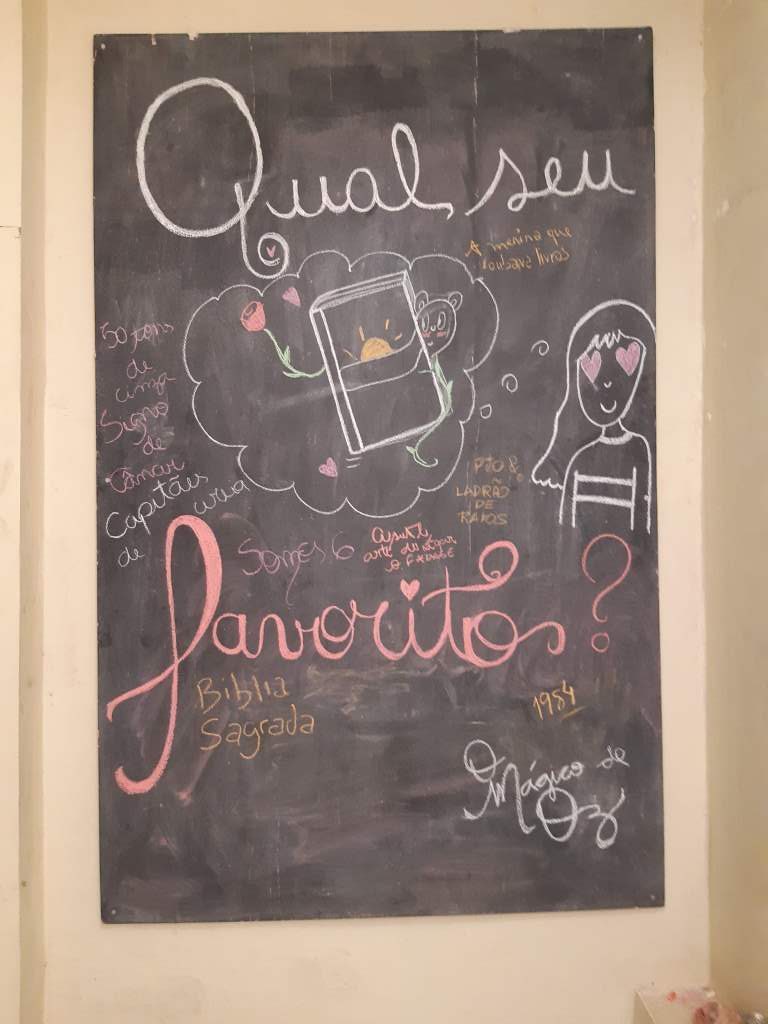 Qual seu
A menina que
roubava livros
50 tons
de
cinza
Signo
de
Câncer
Capitães
de areia
PJO &
LADRÃO
DE
RAIOS
Somos 6
A sutil
arte de ligar
o F*DASE
favoritos?
Biblia
Sagrada
1984
O Mágico de
Oz